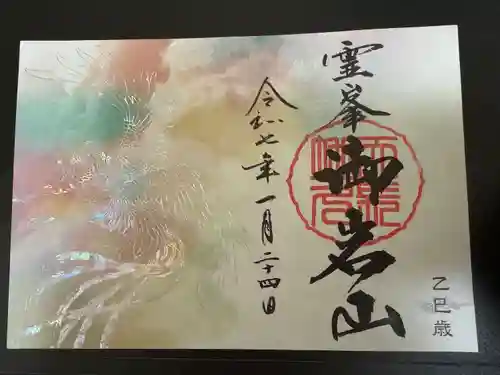 霊峯
御岩山
令和七年一月二十四日
乙巳歳